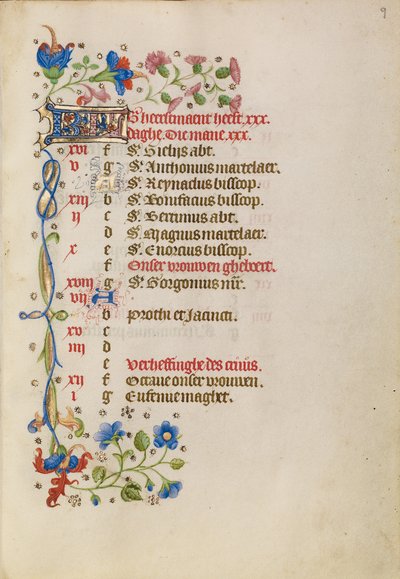 9
KL S heerfmaent heeft. xxx.
daghe. Die mane. xxx.
xvi f S. Gielijs abt.
v g S. Anthonius martelaer.
A S. Reynaclus bisscop.
xiii b S. Bonifacius bisscop.
ii c S. Bertinus abt.
d S. Magnus martelaer.
x e S. Enorcus bisscop.
f Onser vrouwen gheboert.
xviii g S. Gorgonius mr.
vii A
b Prothi et Jacincti.
xv c
iiii d
e Verheffinghe des cruus.
xii f Octave onser vrouwen.
i g Eufenie maghet.